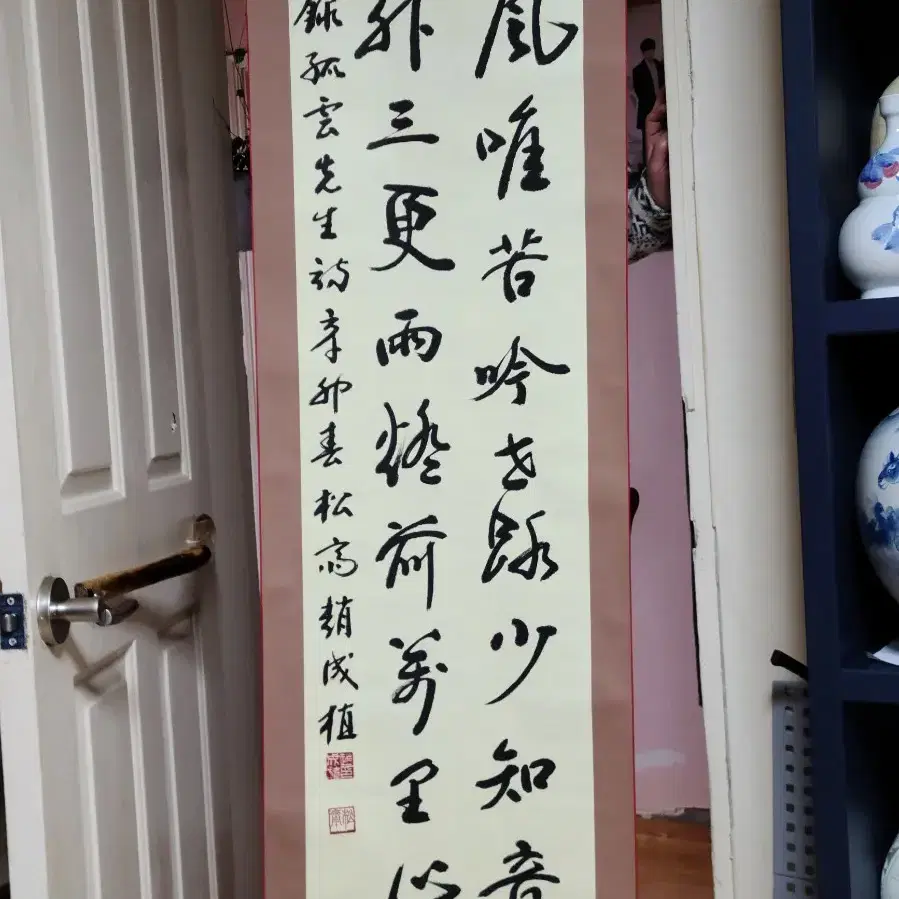 風唯苦吟世路少知音
外三更雨燈前萬里心
錄孤雲先生詩辛卯春松趙成植